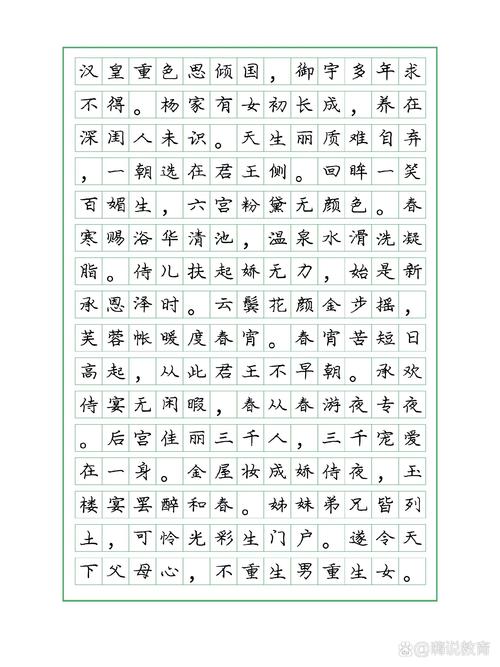 汉皇重色思倾国，御宇多年求
不得。杨家有女初长成，养在
深闺人未识。天生丽质难自弃
，一朝选在君王侧。回眸一笑
百媚生，六宫粉黛无颜色。春
寒赐浴华清池，温泉水滑洗凝
脂。侍儿扶起娇无力，始是新
承恩泽时。云鬓花颜金步摇，
芙蓉帐暖度春宵。春宵苦短日
高起，从此君王不早朝。承欢
侍宴无闲暇，春从春游夜专夜
。后宫佳丽三千人，三千宠爱
在一身。金屋妆成娇侍夜，玉
楼宴罢醉和春。姊妹弟兄皆列
土，可怜光彩生门户。遂令天
下父母心，不重生男重生女。